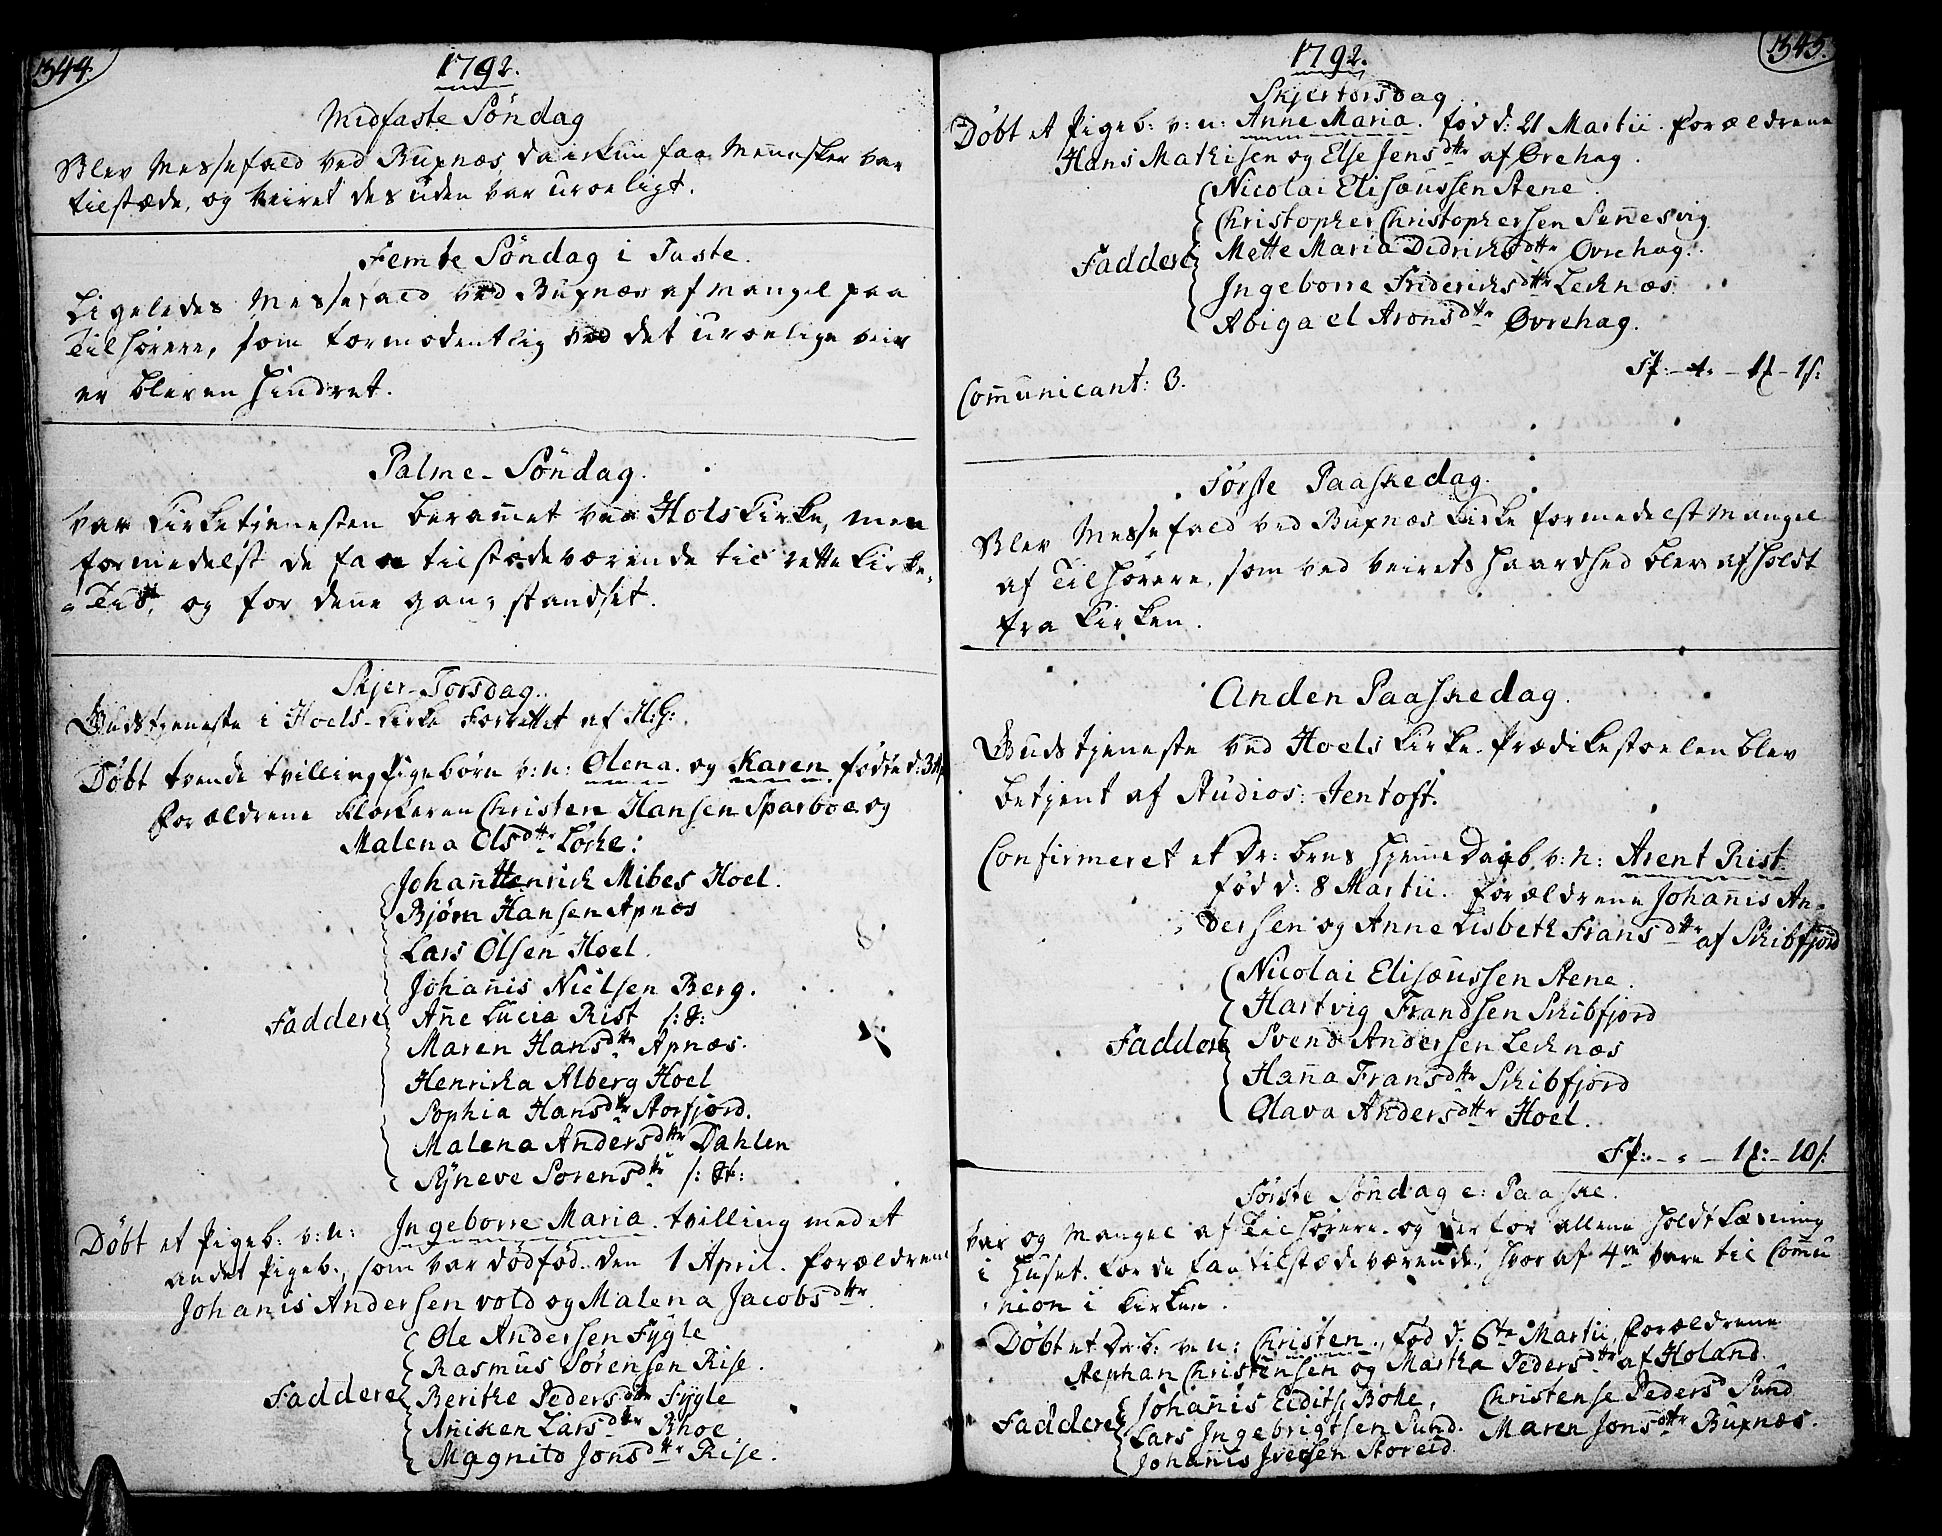 344.
1792.
Midfaste Söndag
Blev Messefald ved Buxnæs, da ickun faa Mennesker var
tilstæde, og veiret des uden var uroeligt.
Femte Söndag i Faste.
Ligeledes Messefald ved Buxnæs af mangel paa
Tilhörere, som formodentlig ved det uroelige veir
er bleven hindret.
Palme-Söndag.
Var Kirketjenesten beramet ved Hols Kirke, men
formedelst de faa tilstædeværende til rette Kirke-
Tid, og for denne gang standset.
Skjer-Torsdag.
Gudstjeneste i Hoels-Kirke Forrettet af H:G:
Döbt tvende tvilling Pigebörn v: n: Olena. og Karen, födte d: 3
Forældrene Klokkeren Christen Hansen Sparboe og
Malena Olsdttr Löche:
Johan Henrich Mibes Hoel.
Bjørn Hansen Apnæs
Lars Olsen Hoel.
Johanis Nielsen Berg.
Faddere Ane Lucia Rist
Maren Hansdttr Apnæs.
Henricha Alberg Hoel
Sophia Hansdttr Storfjord.
Malena Andersdttr Dahlen
Syneve Sorensdttr
Döbt et Pigeb: v: n: Ingeborre Maria. tvilling med et
andet Pigeb., som var dödföd. den 1 April. Forældrene
Johanis Andersen vold og Malena Jacobsdttr
Ole Andersen Fygle
Rasmus Sörensen Rise.
Faddere Berithe Pedersdttr Fygle
Aniken Larsdttr Bhoe
Magnild Jonsdttr Rise.
345.
1792.
Skjertorsdag
Döbt et Pigeb: v: n: Anne Maria. föd d: 21 Martii. Forældrene
Hans Mathisen og Else Jensdttr af Øvrehag.
Nicolai Elisæussen Stene
Christopher Christophersen Sennesvig
Faddere Mette Maria Didrichsdttr Øvrehag.
Ingeborre Friderichsdttr Lecknæs
Abigael Aronsdttr Øvrehag.
Communicant: 3.
Første Paaskedag.
Blev Messefald ved Buxnæs Kirke formedelst Mangel
af Tilhörere, som ved veirets haardhed blev afholdt
fra Kirken.
Anden Paaskedag.
Gudstjeneste ved Hoels Kirke. Prædikestoelen blev
betjent af Studios: Jentoft.
Confirmeret et Dr: bens hjemme Daab v: n: Arent Rist
föd d: 8 Martii. Forældrene Johanis An-
dersen og Anne Lisbeth Fransdttr af Schibfjord
Nicolai Elisæussen Stene.
Hartvig Frandsen Schibfjord
Faddere Svend Andersen Lecknæs
Hana Fransdttr Schibfjord
Olava Andersdttr Hoel.
Første Söndag e: Paaske.
Var og Mangel af Tilhörere. og derfor allene holdt Læsning
i Huset. for de faa tilstædeværende, hvor af 4re vare til Comu
nion i Kirken.
Döbt et Dr.b: v: n: Christen, Föd d. 6te Martii, Forældrene
Stephan Christensen og Martha Pedersdttr af Holand.
Johanis Eidits Bohe, Christense Pedersd Sund
Faddere Lars Ingebrigtsen Sund. Maren Jonsdttr Buxnæs.
Johanis Iversen Storeid.